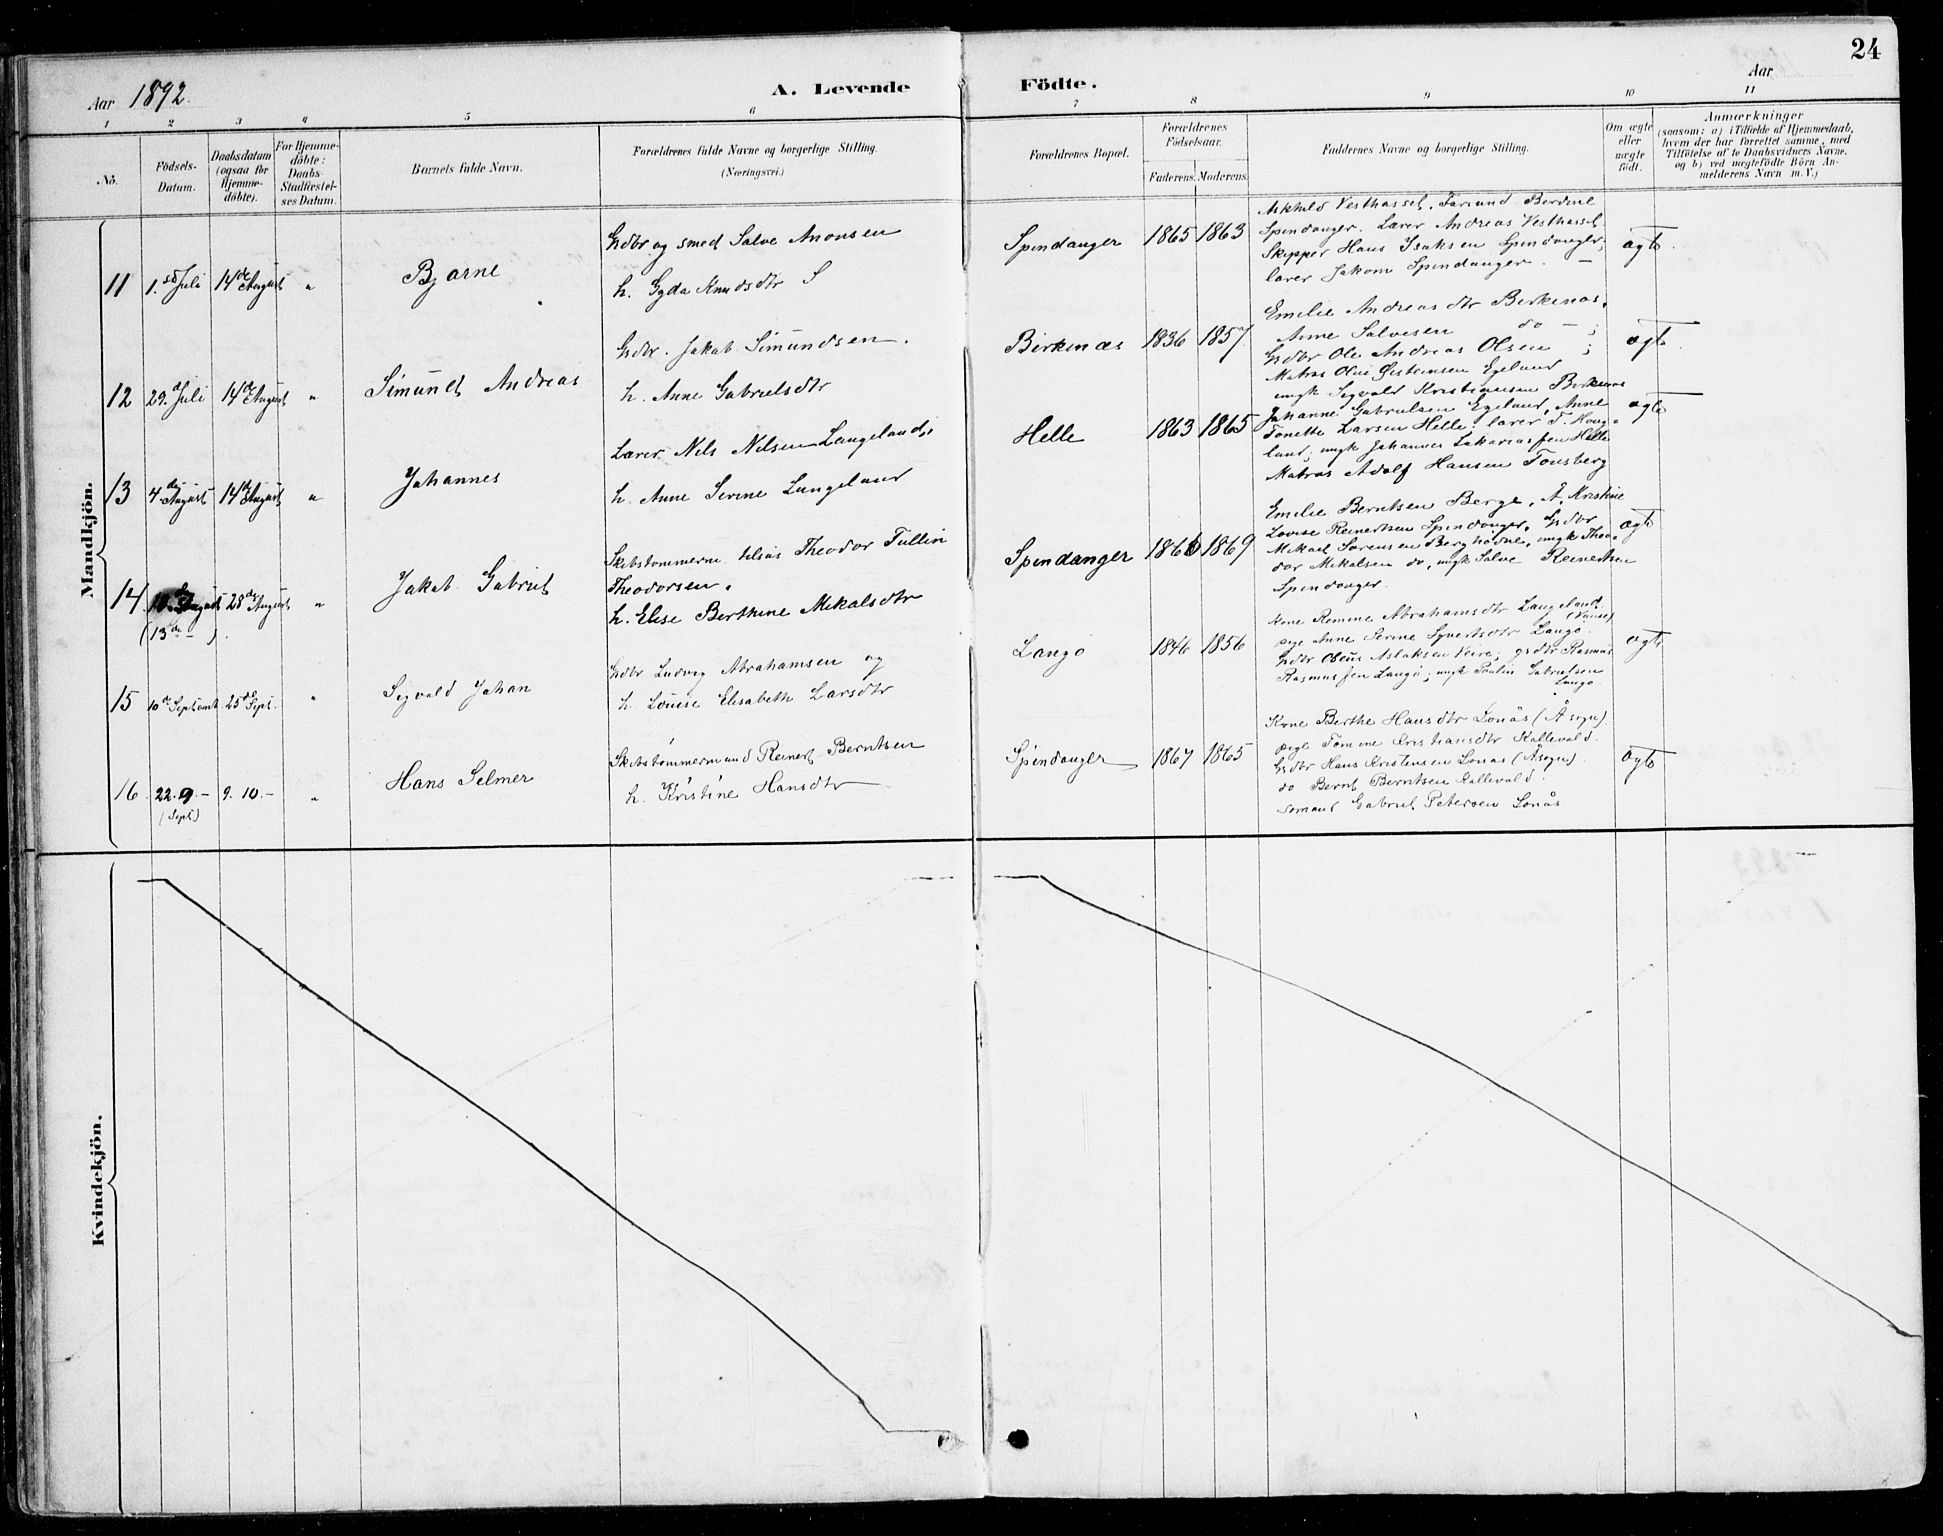 24
Aar 1892.
A. Levende Födte.
Aar
1 2 3 4 5 6 7 8 9 10 11
No.
Födsels-
Datum.
Daabsdatum
(ogsaa for
Hjemme-
döbte).
For Hjemme-
döbte:
Daabs-
Stadfæstel-
ses Datum.
Barnets fulde Navn.
Forældrenes fulde Navne og borgerlige Stilling.
(Næringsvei.)
Forældrenes Bopæl.
Forældrenes
Födselsaar.
Faderens. Moderens.
Faddernes Navne og borgerlige Stilling.
Om ægte
eller
uægte
födt.
Anmærkninger
(saasom: a) i Tilfælde af Hjemmedaab,
hvem der har forrettet samme, med
Tilföielse af to Daabsvidners Navne,
og b) ved uegtefödte Börn An-
melderens Navn m. V.)
Mandkjön.
11 1.ste Juli 14de August " Bjarne
Gdbr og smed Salve Anonsen
h. Gyda Knudsdtr S
Spindanger 1865 1863
Vesthassel, Farsund. Berdine
Spindanger. Lærer Andreas Vesthassel
Skipper Hans Isaksen Spindanger,
lærer Jakom Spindanger. —
ægte
12 29.de Juli 14de August " Simund Andreas
Gdbr. Jakob Simundsen.
h. Anne Gabrielsdtr
Birkenæs 1836 1857
Emilie Andreasdtr Birkenas,
Anne Salvesen do — ;
Gdbr Ole Andreas Olsen ;
Matros Olai Egeland
ungk Sigvald Kristiansen Birkenes
ægte
13 4.de August 14de August " Johannes
Lærer Nils Nilsen Langeland,
h. Anne Serine Langeland
Helle 1863 1865
Johanne Gabrielsen Egeland, Anne
Tonette Larsen Helle; lærer T. Haug-
land; ungk Johannes Sakariassen Helle
Matros Adolf Hansen Tonsberg
ægte
14 August 28de August " Jakob Gabriel
(13de — ).
Skibstømmerm. Elias Theodor Tullin
Theodorsen.
h. Elise Berthine Mikalsdtr
Spindanger 1869
Emilie Berntsen Berge, A. Kristine
Lovise Reinertsen Spindanger, Gdbr
Mikael Sørensen Berghødne, ungk Theo-
dor Mikalsen do, ungk Salve Reinertsen
Spindanger.
ægte
15 10de Septemb. 25de Sept. " Sigvald Johan
Gdbr Ludvig Abrahamsen og
h. Louise Elisabeth Larsdtr
Langø 1846 1856
Kone Abrahamsdtr Langeland,
pige Anne Serine Syvertsdtr Langø.
Gdbr Oleus Aslaksen Veire; gdbr Rasmus
Rasmussen Langø; ungk Paulin Gabrielsen
Langø.
ægte
16 22. 9. — 9. 10. — " Hans Selmer
(Sept)
Skibstømmermand Reinert Berntsen
h. Kristine Hansdtr
Spindanger 1867 1865
Kone Berthe Hansdtr Lonås (Å sogn)
pige Tomine Kristiansdtr Kallevald.
Gdbr Hans Kristensen Lonas (Åsogn).
do Bernt Berntsen Kallevald.
Sømand Gabriel Petersen Lonås
ægte
Kvindekjön.